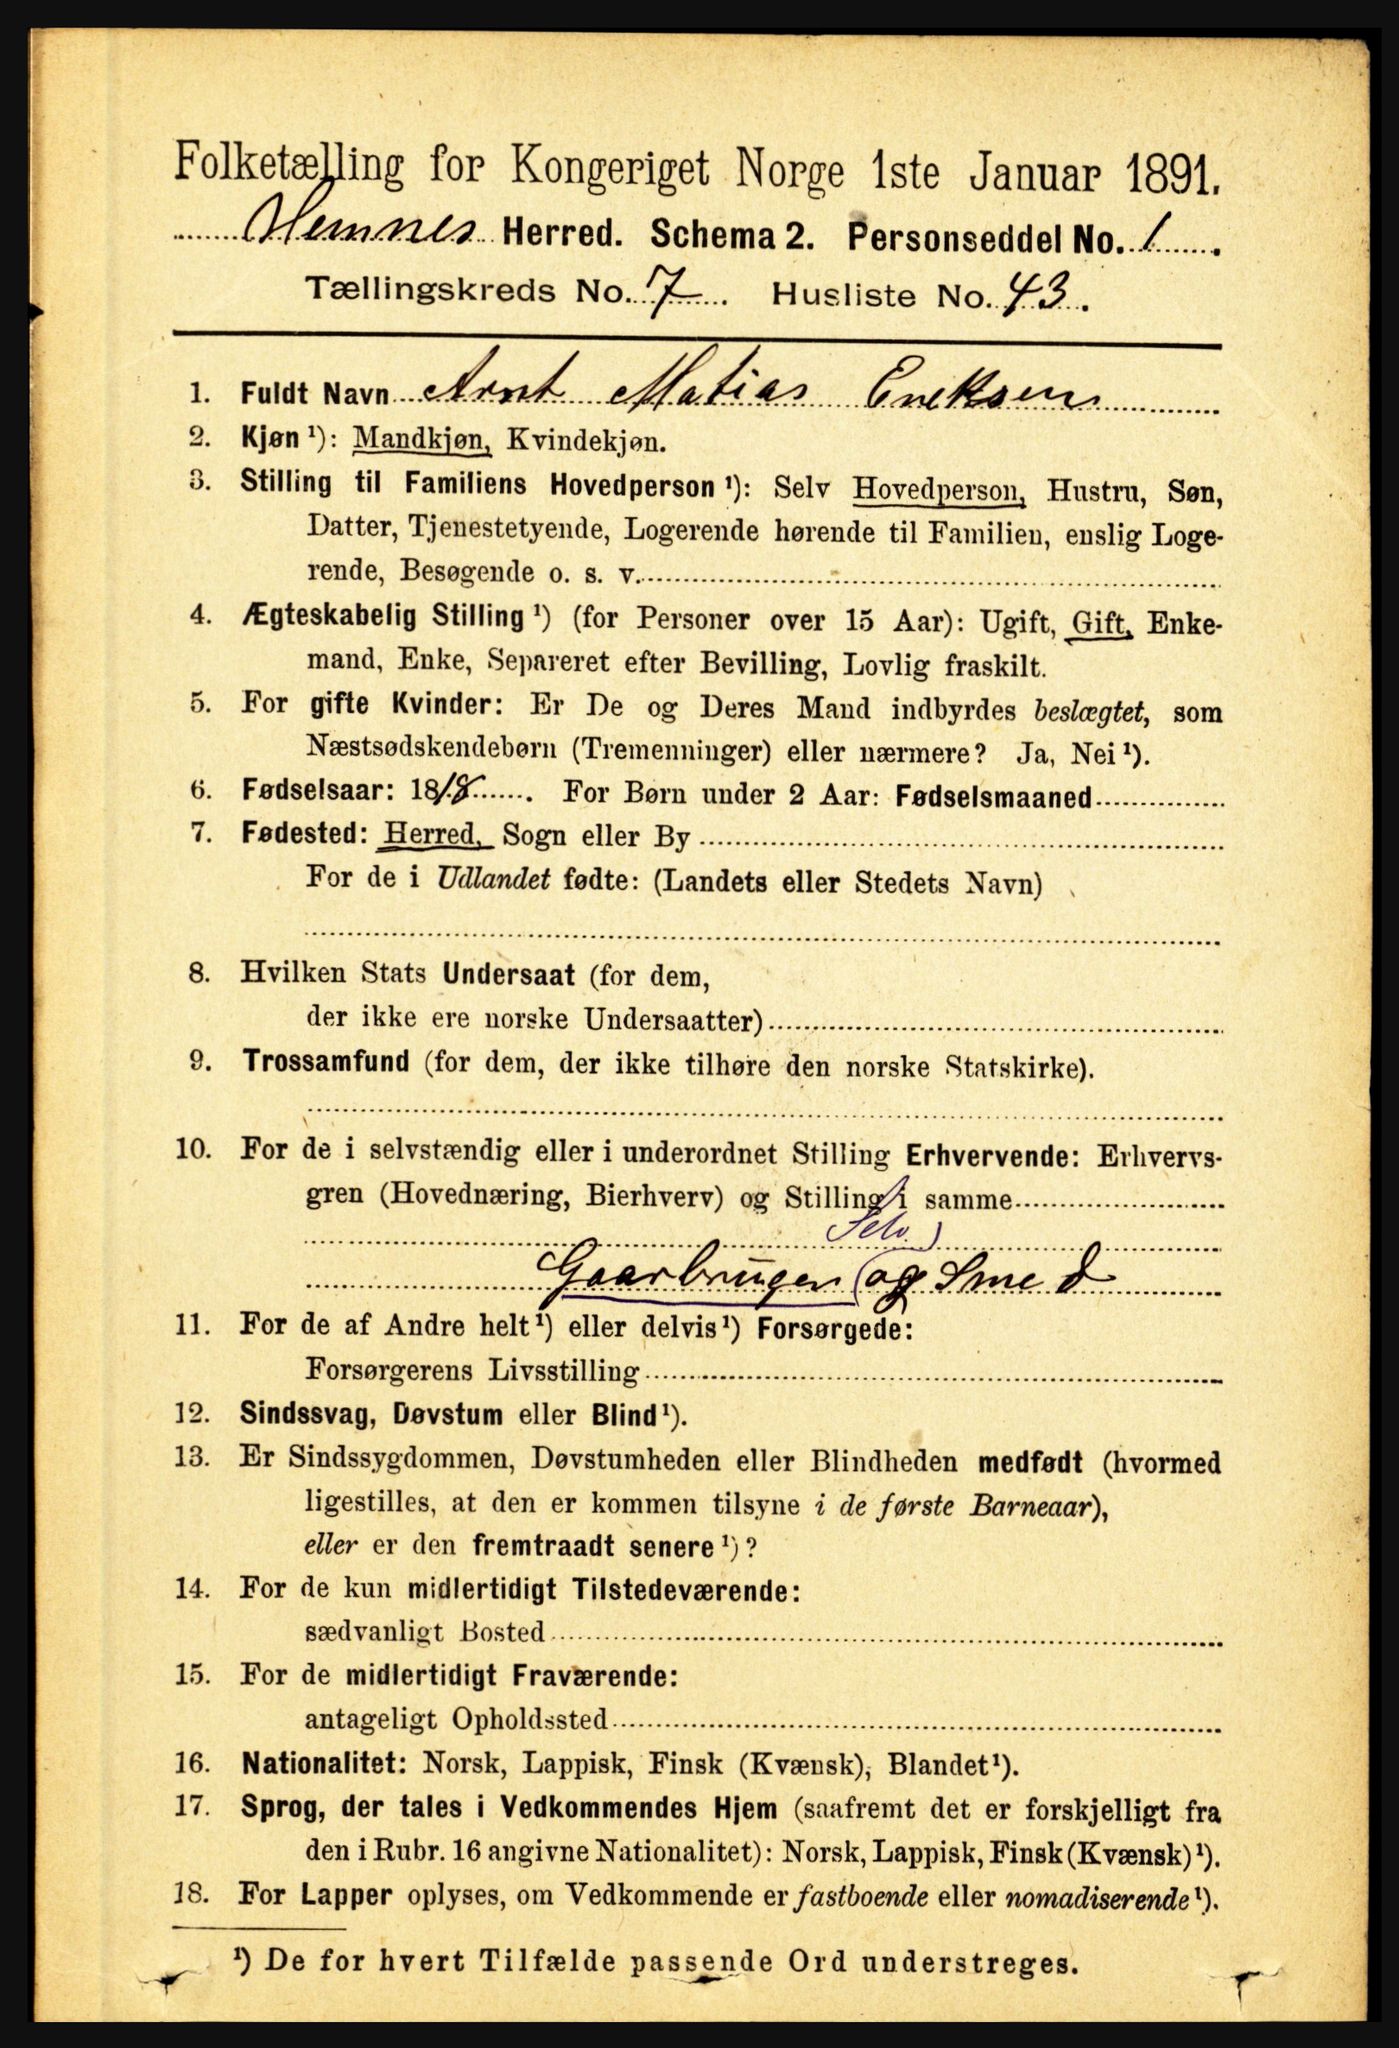 Folketælling for Kongeriget Norge 1ste Januar 1891.
Hemnes Herred. Schema 2. Personseddel No. 1.
Tællingskreds No. 7. Husliste No. 43.
1. Fuldt Navn Arnt Matias Eneksen
2. Kjøn ¹): Mandkjøn, Kvindekjøn.
3. Stilling til Familiens Hovedperson ¹): Selv Hovedperson, Hustru, Søn,
Datter, Tjenestetyende, Logerende hørende til Familien, enslig Loge-
rende, Besøgende o. s. v.
4. Ægteskabelig Stilling ¹) (for Personer over 15 Aar): Ugift, Gift, Enke-
mand, Enke, Separeret efter Bevilling, Lovlig fraskilt.
5. For gifte Kvinder: Er De og Deres Mand indbyrdes beslægtet, som
Næstsødskendebørn (Tremenninger) eller nærmere? Ja, Nei ¹).
6. Fødselsaar: 1818. For Børn under 2 Aar: Fødselsmaaned
7. Fødested: Herred, Sogn eller By
For de i Udlandet fødte: (Landets eller Stedets Navn)
8. Hvilken Stats Undersaat (for dem,
der ikke ere norske Undersaatter)
9. Trossamfund (for dem, der ikke tilhøre den norske Statskirke).
10. For de i selvstændig eller i underordnet Stilling Erhvervende: Erhvervs-
gren (Hovednæring, Bierhverv) og Stilling i samme
Selv
Gaarbrugen (og Smed
11. For de af Andre helt ¹) eller delvis ¹) Forsørgede:
Forsørgerens Livsstilling
12. Sindssvag, Døvstum eller Blind ¹).
13. Er Sindssygdommen, Døvstumheden eller Blindheden medfødt (hvormed
ligestilles, at den er kommen tilsyne i de første Barneaar),
eller er den fremtraadt senere ¹)?
14. For de kun midlertidigt Tilstedeværende:
sædvanligt Bosted
15. For de midlertidigt Fraværende:
antageligt Opholdssted
16. Nationalitet: Norsk, Lappisk, Finsk (Kvænsk), Blandet ¹).
17. Sprog, der tales i Vedkommendes Hjem (saafremt det er forskjelligt fra
den i Rubr. 16 angivne Nationalitet): Norsk, Lappisk, Finsk (Kvænsk) ¹).
18. For Lapper oplyses, om Vedkommende er fastboende eller nomadiserende ¹).
¹) De for hvert Tilfælde passende Ord understreges.